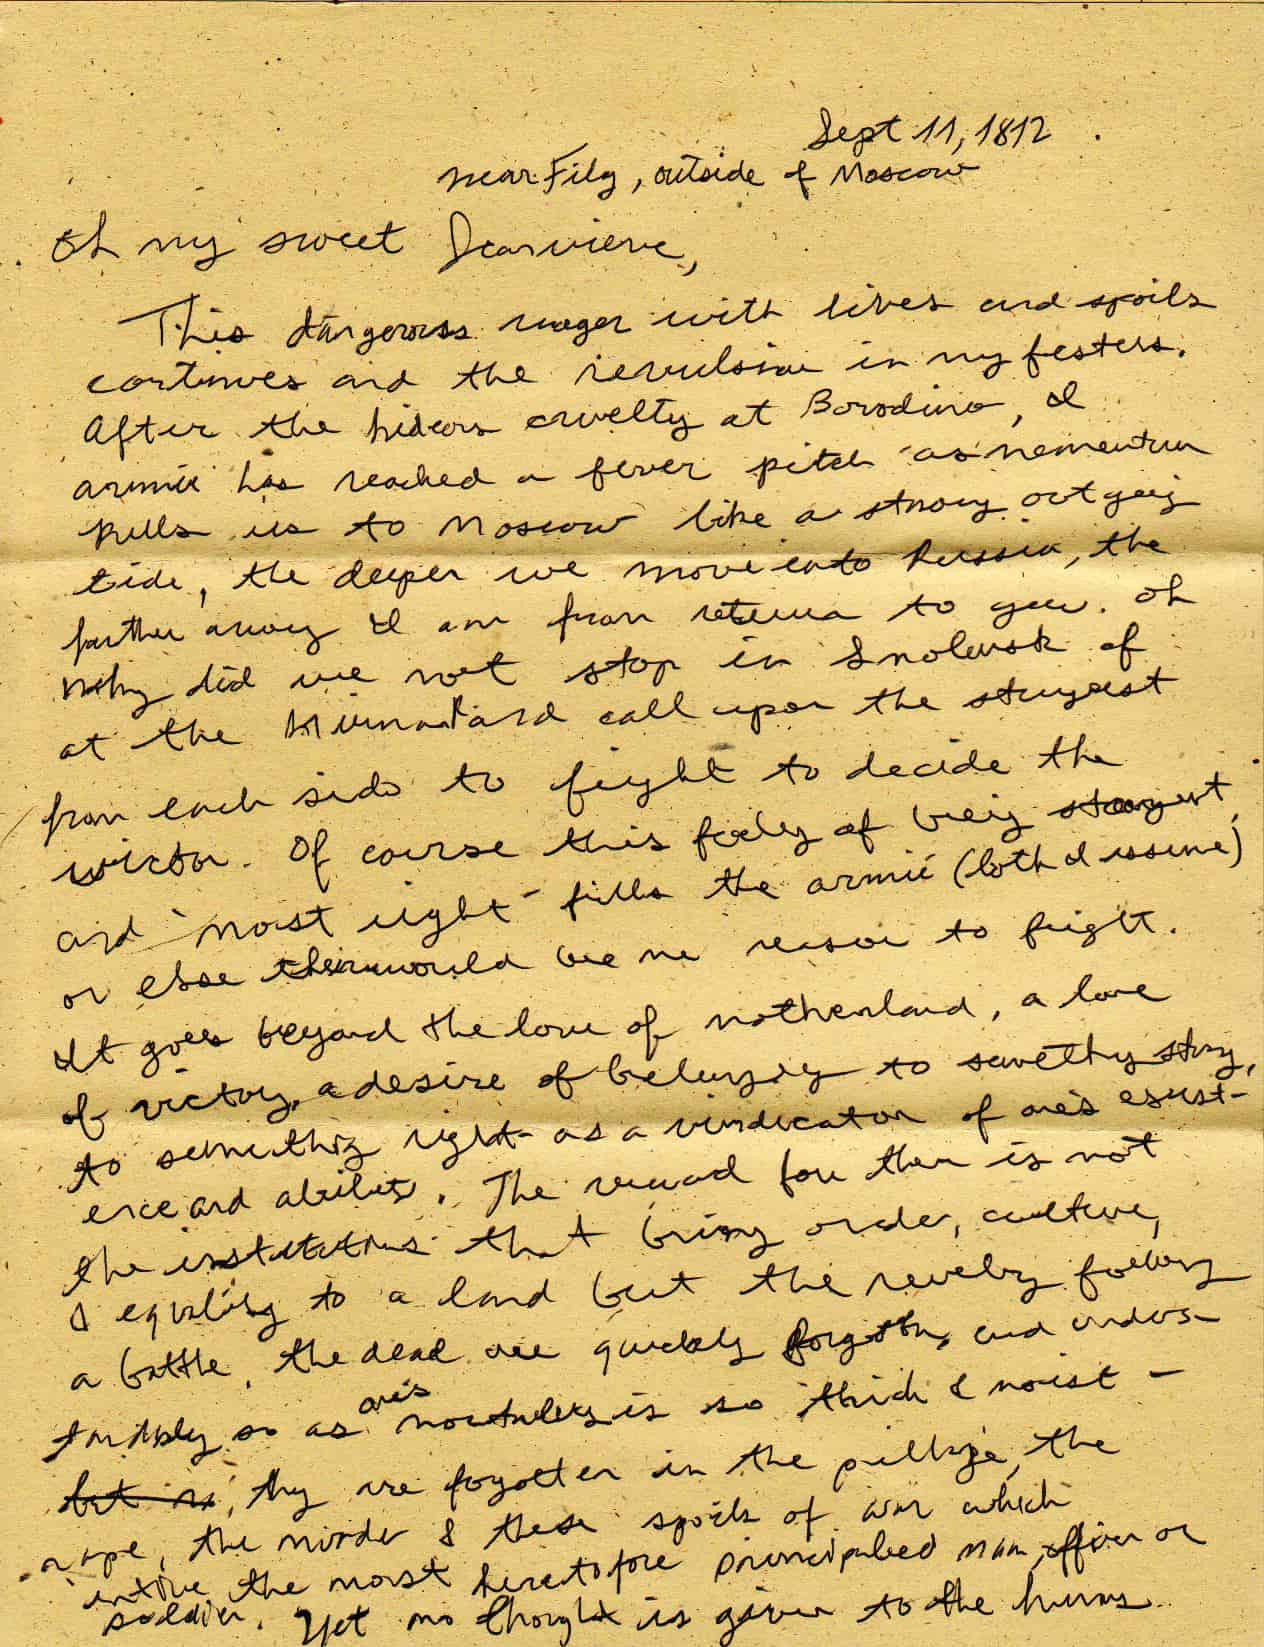 Sept 11, 1812
near Fily, outside of Moscow
Oh my sweet
This dangerous wager with lives and spoils
continues and the revulsion in my festers.
After the hideous cruelty at Borodino, d
armié has reached a fever pitch as momentum
pulls us to Moscow like a strong outgoing
tide, the deeper we move into Russia, the
farther away I am from return to you. Oh
why did we not stop in Smolensk of
at the and call upon the strongest
from each side to fight to decide the
victor. Of course this feeling of being strongest
and "most right" fills the armié (both d issime)
or else there would be no reason to fight.
It goes beyond the love of motherland, a love
of victory, a desire of belonging to something strong,
to something right - as a vindication of one's exist-
ence and ability. The reward for them is not
the institutions that bring order, culture,
& equality to a land but the revelry following
a battle, the dead are quickly forgotten, and unders-
tandably so as one's mortality is so thick & moist -
but is, they are forgotten in the pillage, the
rape, the murder & these spoils of war which
entice the most heretofore principaled man, officer or
soldier. Yet no thought is given to the